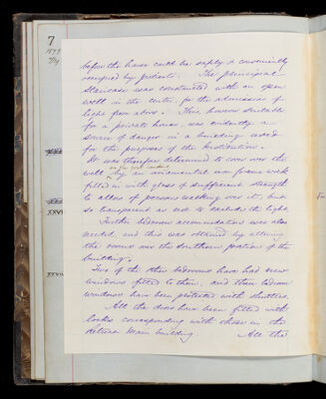 7
1879
before the house could be safely & conveniently
occupied by patients. The principal
Staircase was constructed with an open
well in the centre, for the admission of
light from above. This, however suitable
for a private house, was evidently a
source of danger in a building used
for the purposes of the Institution.
It was therefore determined to cover over the
well by an ornamental iron frame work
filled in with glass of sufficient strength
to allow of persons walking over it, but
so transparent as not to exclude the light
Further bedroom accommodation was also
needed, and this was obtained by altering
the rooms over the southern portion of the
building.
Two of the other bedrooms have had new
windows fitted to them, and their bedroom
windows have been protected with shutters.
All the doors have been fitted with
locks corresponding with those in the
main building All the